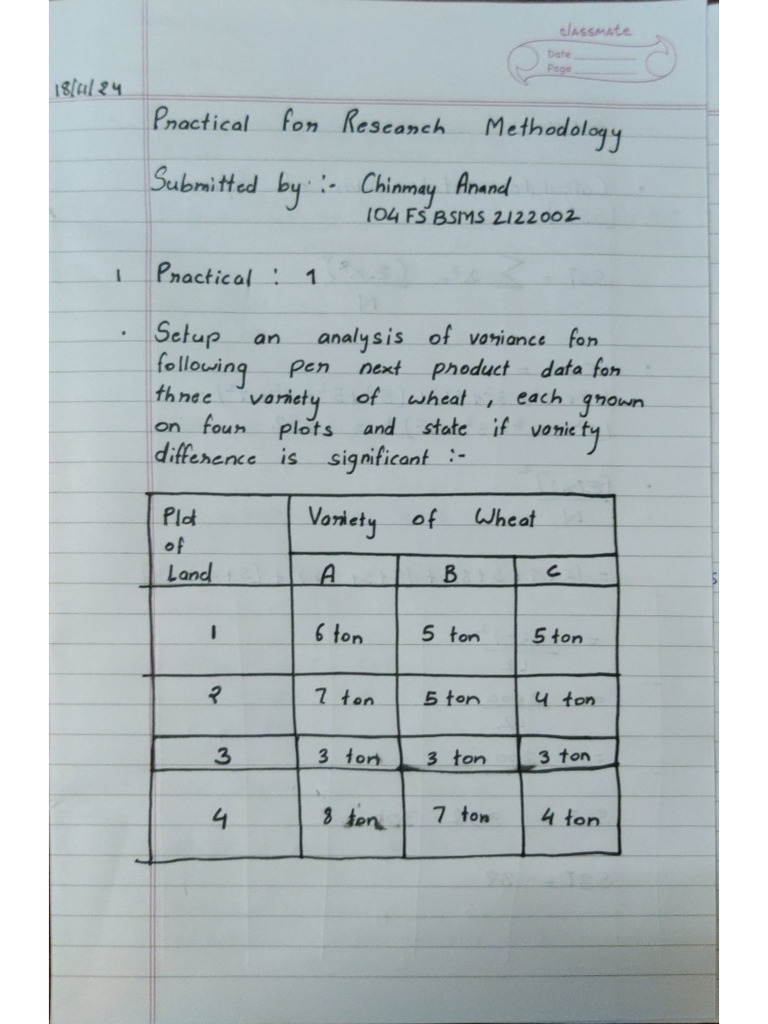 classmate
Date
Page
18/11/24
Practical for Research Methodology
Submitted by :- Chinmay Anand
104 FS BSMS 2122002
1 Practical : 1
. Setup an analysis of variance for
following per next product data for
three variety of wheat, each grown
on four plots and state if variety
difference is significant :-
Plot of Land Variety of Wheat
A B C
1 6 ton 5 ton 5 ton
2 7 ton 5 ton 4 ton
3 3 ton 3 ton 3 ton
4 8 ton 7 ton 4 ton